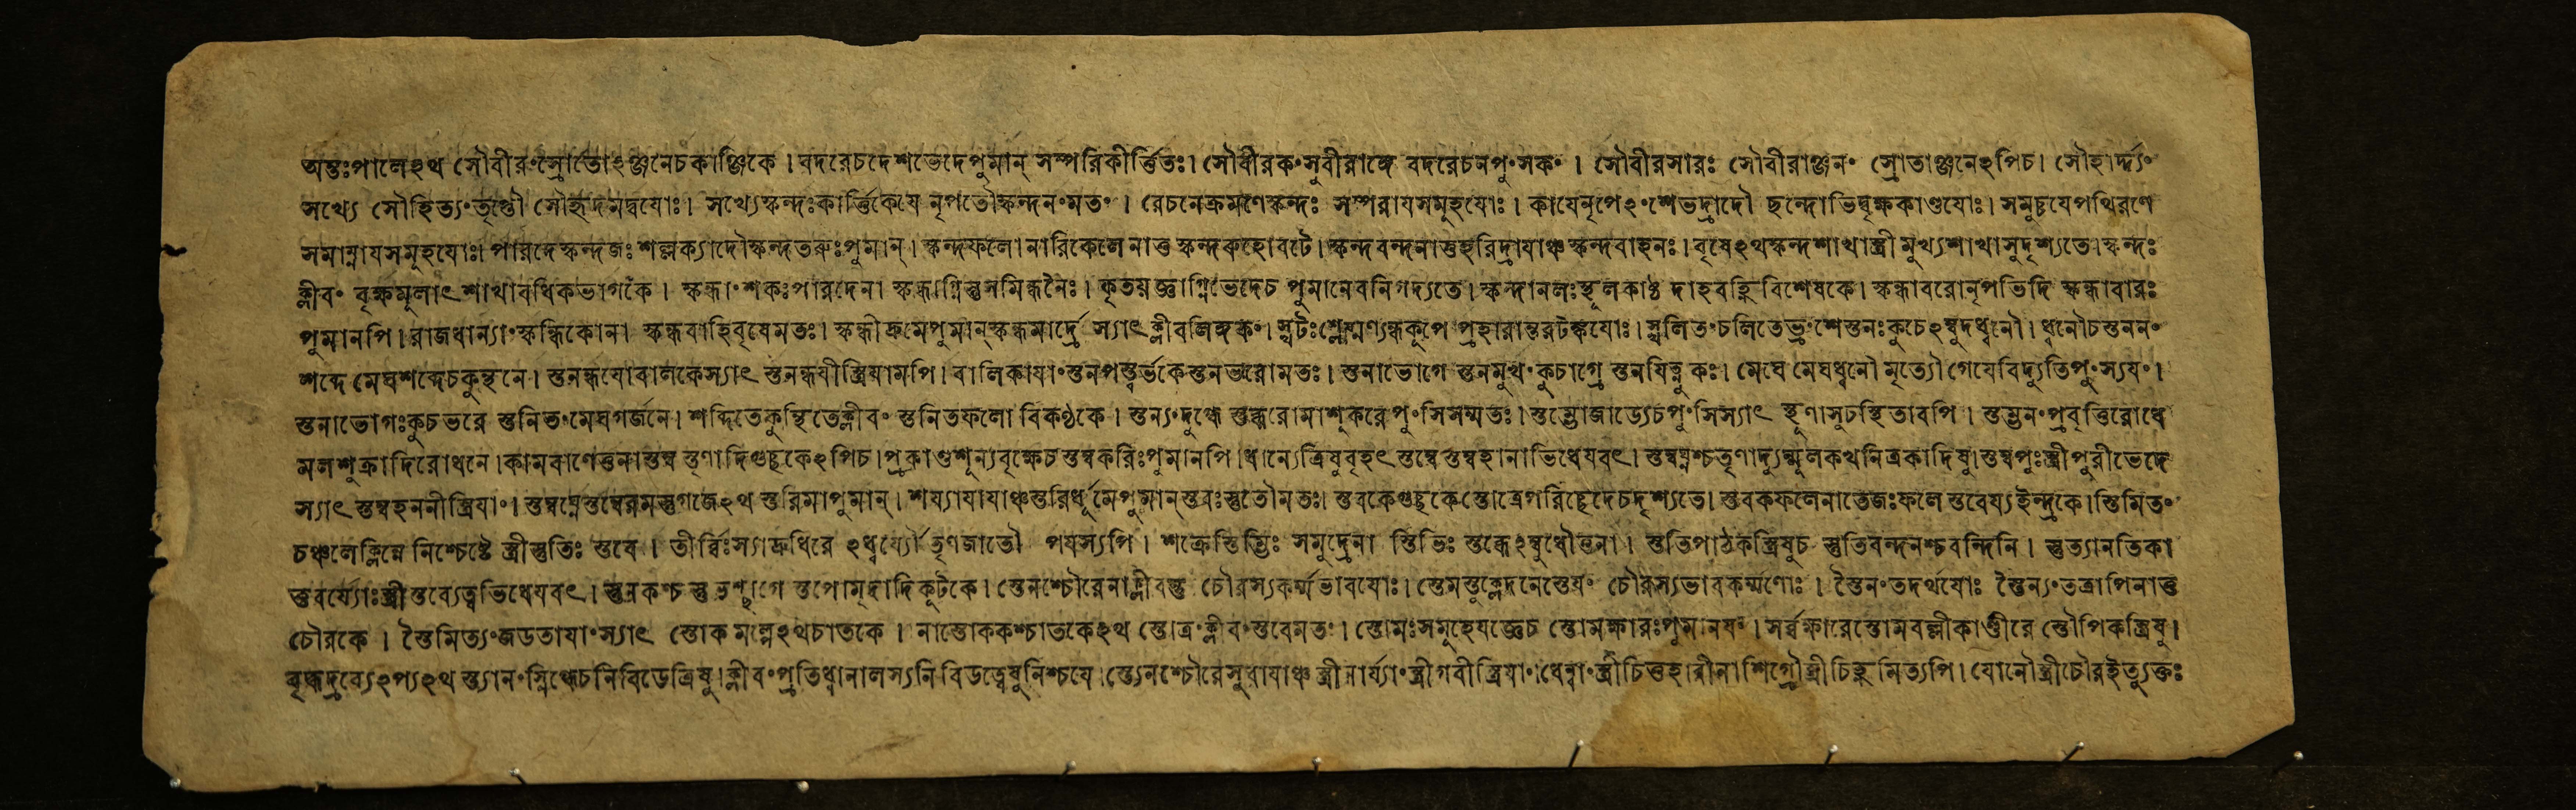 অন্তঃপালেঽথ সৌবীরংস্রোতোঽঞ্জনেচকাঞ্জিকে।বদরেচদেশভেদেপুমান্ সম্পরিকীর্ত্তিতঃ।সৌবীরকংসুবীরাম্লে বদরেচনপুংসকং। সৌবীরসারঃ সৌবীরাঞ্জনং স্রোতাঞ্জনেঽপিচ। সৌহার্দ্দ্যং
সখ্যে সৌহিত্যংতৃপ্তৌ সৌহৃদমদ্বযোঃ। সখ্যেস্কন্দঃকার্ত্তিকেযে নৃপতৌস্কন্দনংমতং। রেচনেক্রমণেস্কন্দঃ সম্পরাযসমুহযোঃ। কাযেনৃপেঽংশেভদ্রাদৌ ছন্দোভিদ্বৃক্ষকাণ্ডযোঃ। সমুচ্চযেপথিরণে
সমাম্নাযসমুহযোঃ। পারদেস্কন্দজঃ শল্লক্যাদৌস্কন্দতরুঃপুমান্। স্কন্দফলো নারিকেলে নাত্ত স্কন্দরুহোবটে।স্কন্দবন্দনাত্তহরিদ্রাযাঞ্চস্কন্দবাহনঃ।বৃষেঽথস্কন্দশাখাস্ত্রীমুখ্যশাখাসুদৃশ্যতে।স্কন্দঃ
ক্লীবং বৃক্ষমূলাৎশাখাবধিকভাগকে। স্কন্ধাংশকঃপারদেনা স্কন্ধাগ্নিস্তুসমিন্ধনৈঃ। কৃতযজ্ঞাগ্নিভেদেচ পুমানেবনিগদ্যতে। স্কন্দানলঃস্থূলকাষ্ঠ দাহবহ্নিবিশেষকে। স্কন্ধাবরোনৃপভিদি স্কন্ধাবারঃ
পুমানপি।রাজধান্যাংস্কন্ধিকোনা স্কন্ধবাহিবৃষেমতঃ।স্কন্ধীদ্রুমেপুমান্স্কন্ধমার্দ্রে স্যাৎক্লীবলিঙ্গকং। প্রহারান্তরটঙ্কযোঃ।স্খলিতংচলিতেভ্রংশেস্তনঃকুচেঽম্বুদধ্বনৌ।ধ্বনৌচস্তননং
শব্দে মেঘশব্দেচকুন্থনে। স্তনন্ধযোবালকেস্যাৎ স্তনন্ধযীস্ত্রিযামপি। বালিকাযাংস্তনপস্ত্বর্ভকেস্তনভরোমতঃ। স্তনাভোগে স্তনমুখংকুচাগ্রে স্তনযিত্নুকঃ। মেঘে মেঘধ্বনৌ মৃত্যৌগেযেবিদ্যুতিপুংস্যযং।
স্তনাভোগঃকুচভরে স্তনিতংমেঘগর্জনে। শব্দিতেকুন্থিতেক্লীবং স্তনিতফলো বিকণ্ঠকে। স্তন্যংদুগ্ধে স্তব্ধরোমাশূকরেপুংসিসম্মতঃ।স্তম্ভোজাড্যেচপুংসিস্যাৎ স্থূণাসুচস্থিতাবপি। স্তম্ভনংপ্রবৃত্তিরোধে
মলশুক্রাদিরোধনে।কামবাণেত্তনাস্তম্ব স্তৃণাদিগুচ্ছকেঽপিচ।প্রকাণ্ডশূন্যবৃক্ষেচস্তম্বকরিঃপুমানপি।ধান্যেত্রিষুবৃহৎ স্তম্বেস্তম্বহানাভিধেযবৎ। স্তম্বঘ্নশ্চতৃণাদ্যুন্মুলকখনিত্রকাদিষু।স্তম্বপূঃস্ত্রীপুরীভেদে
স্যাৎ স্তম্বহননীস্ত্রিযাং।স্তম্বঘ্নেস্তম্বেরমস্তুগজেঽথ স্তরিমাপুমান্। শয্যাযাযাঞ্চস্তরির্ধূমেপুমান্স্তবঃস্তুতৌমতঃ। স্তবকেগুচ্ছকেস্তোত্রেপরিচ্ছেদেচদৃশ্যতে।স্তবকফলেনাতেজঃফলে স্তবেয্যইন্দ্রকে।স্তিমিতং
চঞ্চলেক্লিন্নে নিশ্চেষ্টে স্ত্রীস্তুতিঃ স্তবে। তীর্ব্বিঃস্যাদ্রুধিরে ঽধ্বর্য্যৌতৃণজাতৌ পযস্যপি। শক্রেস্তিভিঃ সমুদ্রেনা স্তিভিঃ স্তব্ধেঽম্বুধৌত্তনা। স্তুতিপাঠকস্ত্রিষুচ স্তুতিবন্দনশ্চবন্দিনি। স্তুত্যানতিকা
স্তবর্য্যোঃস্ত্রীস্তব্যেত্বভিধেযবৎ। স্তূপোমৃদাদিকূটকে।স্তেনশ্চৌরেনাক্লীবন্তু চৌরস্যকর্ম্মভাবযোঃ।স্তেমস্তুক্লেদনেস্তেযং চৌরস্যভাবকর্ম্মণোঃ। স্তৈনংতদর্থযোঃ স্তৈন্যংতত্রাপিনাত্ত
চৌরকে। স্তৈমিত্যংজডতাযাংস্যাৎ স্তোকমল্পেঽথচাতকে। নাস্তোককশ্চাতকেঽথ স্তোত্রংক্লীবংস্তবেমতং। স্তোমঃসমুহেযজ্ঞেচ স্তোমক্ষারঃপুমানযং।সর্ব্বক্ষারেস্তোমবল্লীকাণ্ডীরে স্তৌপিকন্ত্রিষু।
বৃদ্ধদ্রব্যেঽপ্যঽথ স্ত্যানংস্নিগ্ধেচনিবিডেত্রিষু।ক্লীবংপ্রতিধ্বানালস্যনিবিডত্বেষুনিশ্চযে।স্ত্যেনশ্চৌরেসুধাযাঞ্চ স্ত্রীনার্য্যাংস্ত্রীগবীস্ত্রিযাং।ধেন্বাংস্ত্রীচিত্তহারীনাশিগ্রৌস্ত্রীচিহ্নমিত্যপি। যোনৌস্ত্রীচৌরইত্যুক্তঃ